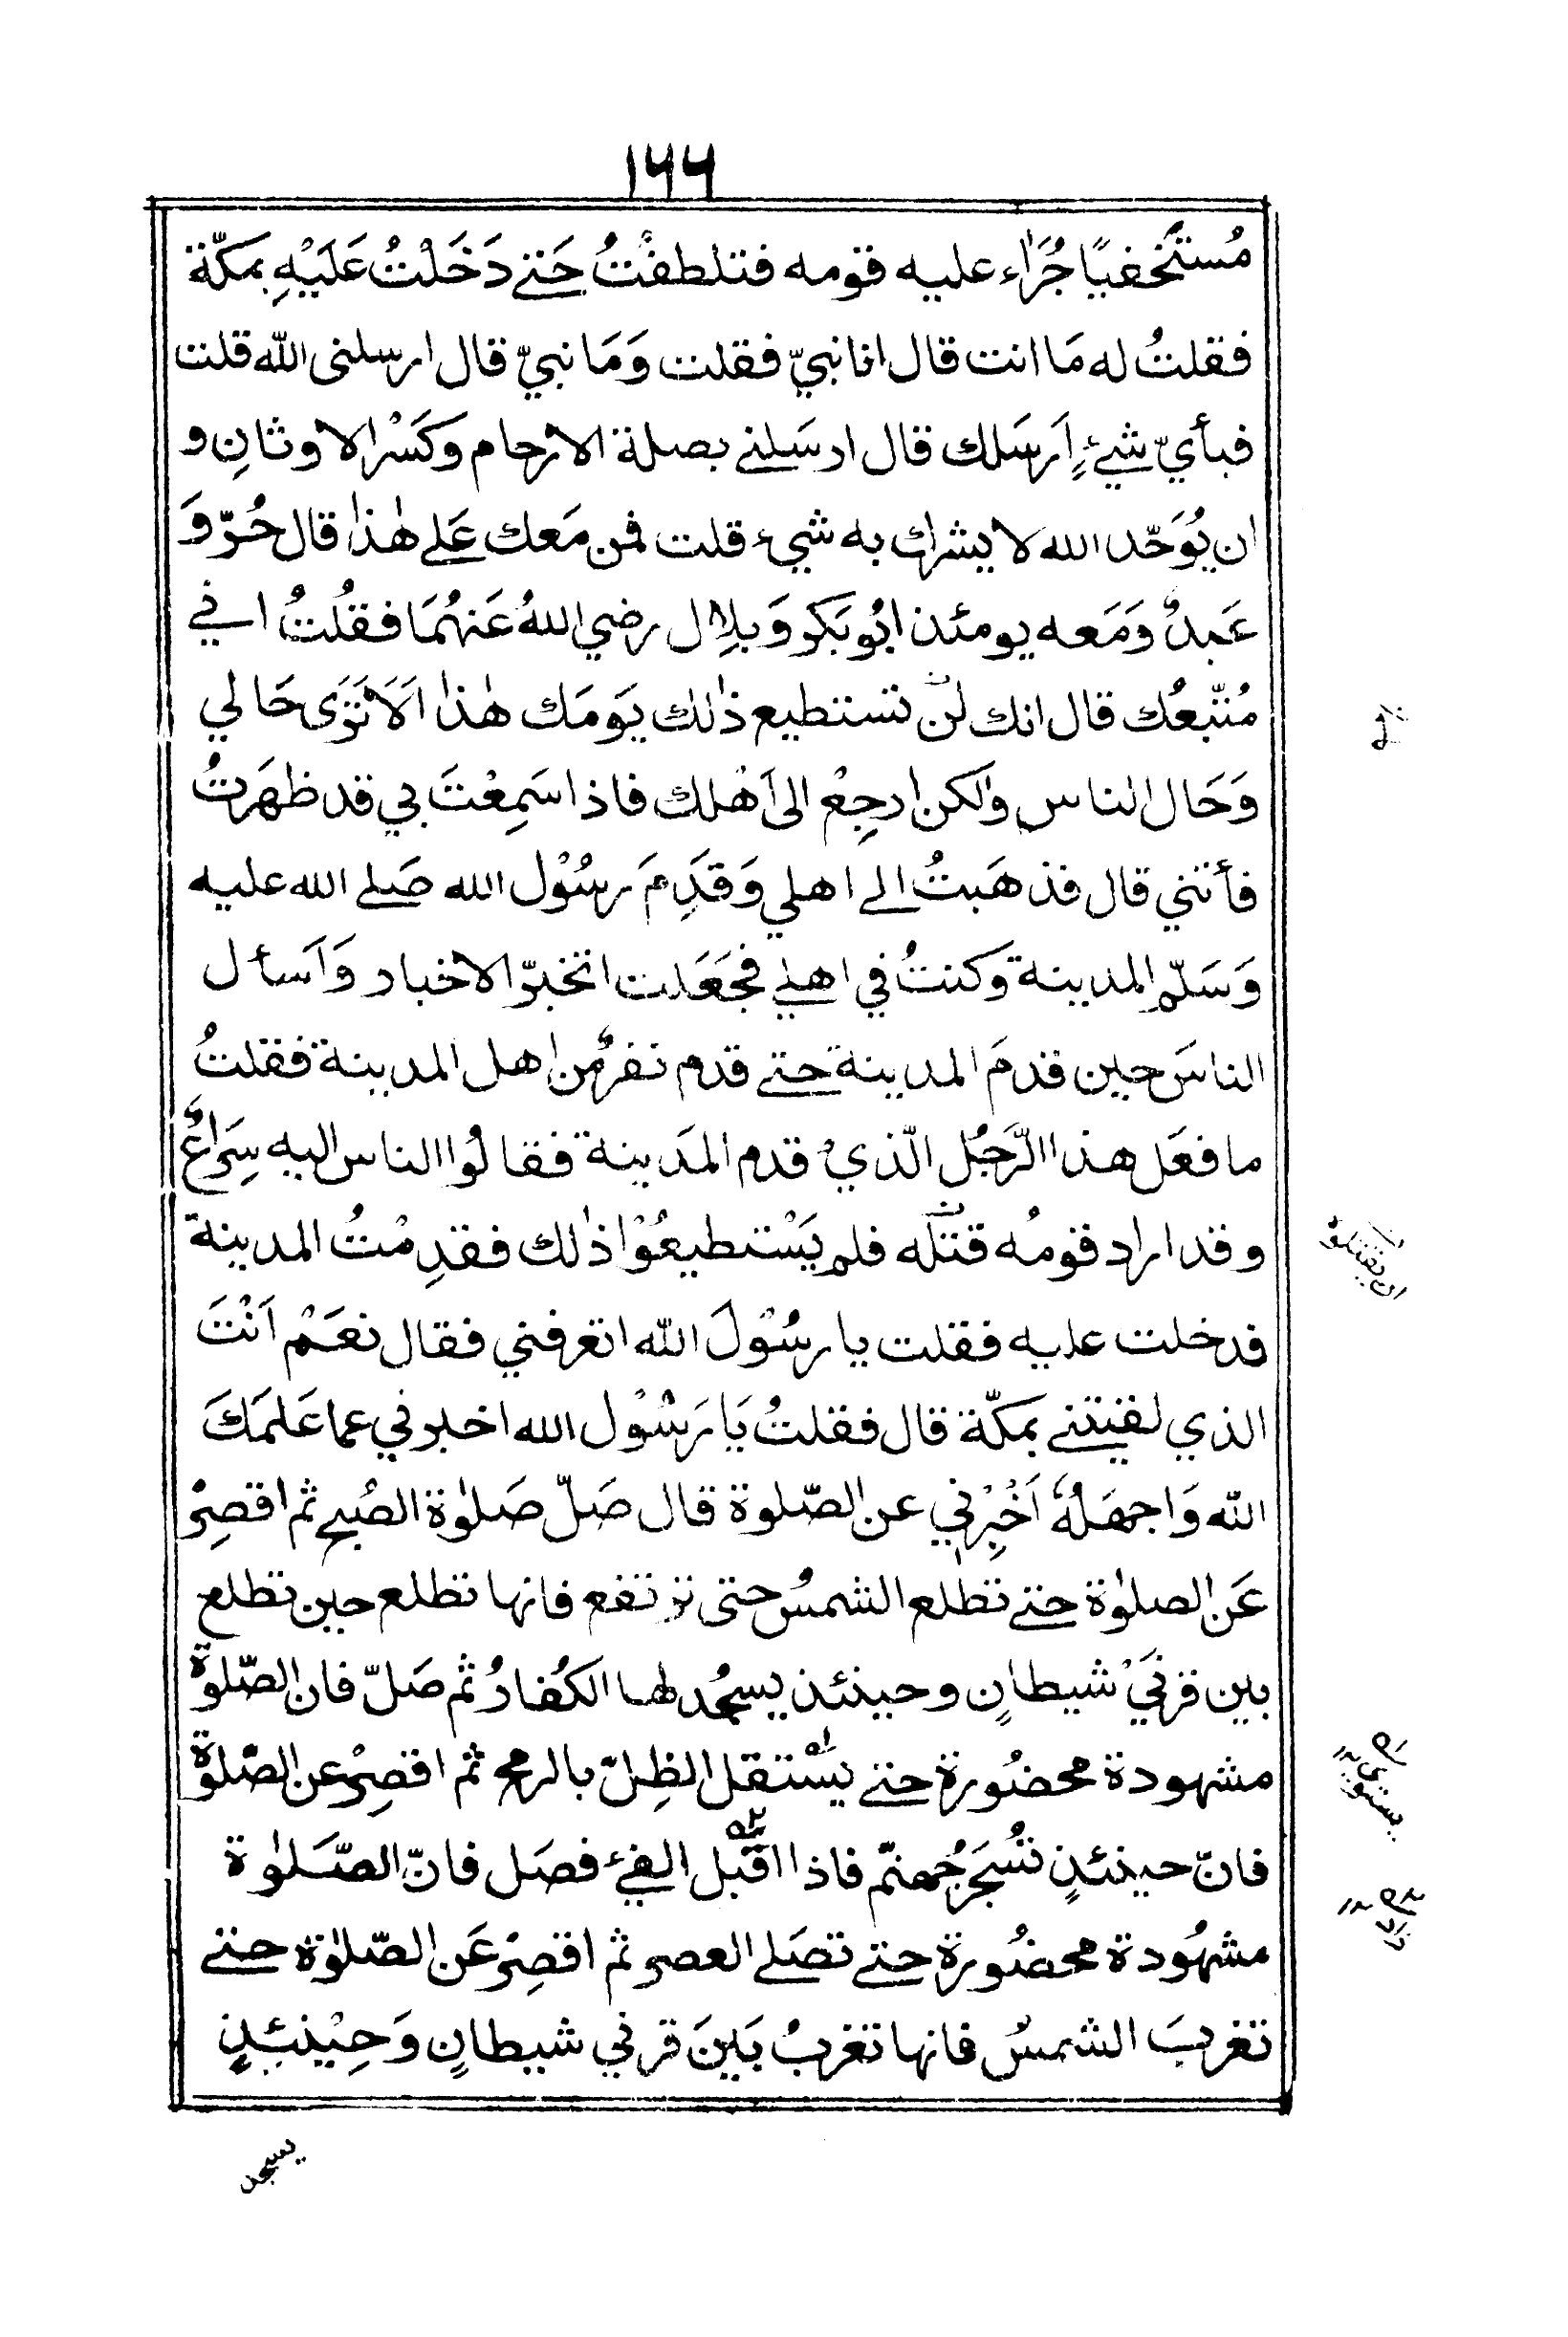 ١٦٦
مُستَخفيًا جُرَاٰء عليه قومه فتلطفْتُ حَتے دَخَلْتُ عَلَيْهِ بمكّة
فقلتُ له مَا انت قال انا نبيّ فقلت وَمَا نبيّ قال ارسلنى الله قلت
فبأيّ شيءٍ اَرسَلك قال ارسَلنے بصلة الارحام وكَسْر الاوثانِ و
ان يُوَحّد الله لا يشرك به شيء قلت فمن مَعك عَلے هٰذا قال حُرّ وَ
عَبدٌ وَمَعه يومئذ ابُو بَكر وَبِلال رضي اللهُ عَنهُمَا فقُلتُ اني
مُتّبعُك قال انك لن تستطيع ذٰلك يَومَك هٰذا اَلَا تَرَى حَالي
وَحَال الناس ولٰكن ارجِعْ الى اَهْلك فاذا سَمِعْتَ بي قد ظهَرتُ
فأتني قال فذهَبتُ الے اهلي وَقَدِمَ رسُوْل الله صَلے الله عليه
وَسَلّم المدينة وَكنتُ في اهلے فجَعَلت اتخبّر الاخبار وَاَسأل
الناسَ حين قدمَ المدينة حتے قدم نفرٌ مّن اهل المدينة فقلتُ
ما فعَل هذا الرَّجُل الّذيْ قدم المَدينة فقالُوا الناس اليه سِرَاعٌ
وقد اراد قومُه قتلَه فلم يَسْتطيعُوْا ذٰلك فقدِمْتُ المدينة
فدخلت عليه فقلت يا رسُوْلَ الله اتعرفني فقال نعَمْ اَنْتَ
الذي لقيتنے بمكّة قال فقلتُ يَا رَسُوْل الله اخبرني عما عَلمَكَ
الله وَاجهَلُهٗ اَخْبِرْنِي عن الصّلوة قال صَلّ صَلوٰة الصُبح ثم اقصِرْ
عَن الصلوٰة حتے تطلع الشمسُ حتى ترتفع فانها تطلع حين تطلع
بين قرنَيْ شيطانٍ وحينئذ يسجُد لها الكُفارُ ثم صَلّ فان الصّلوة
مشهودة محضُورة حتے يسْتقل الظِلّ بالرمح ثم اقصِرْ عن الصّلوة
فانّ حينئذٍ تُسْجَرُ جُهنّم فاذا اقبل الفيْء فصَل فانّ الصّلوٰة
مشهُودة محضُورة حتے تصَلے العصر ثم اقصِرْ عَن الصّلوٰة حتے
تغربَ الشمسُ فانها تغربُ بَينَ قرني شيطانٍ وَحِيْنئِذٍ
ان يقتلوه
يستوي
زاد
يسجد